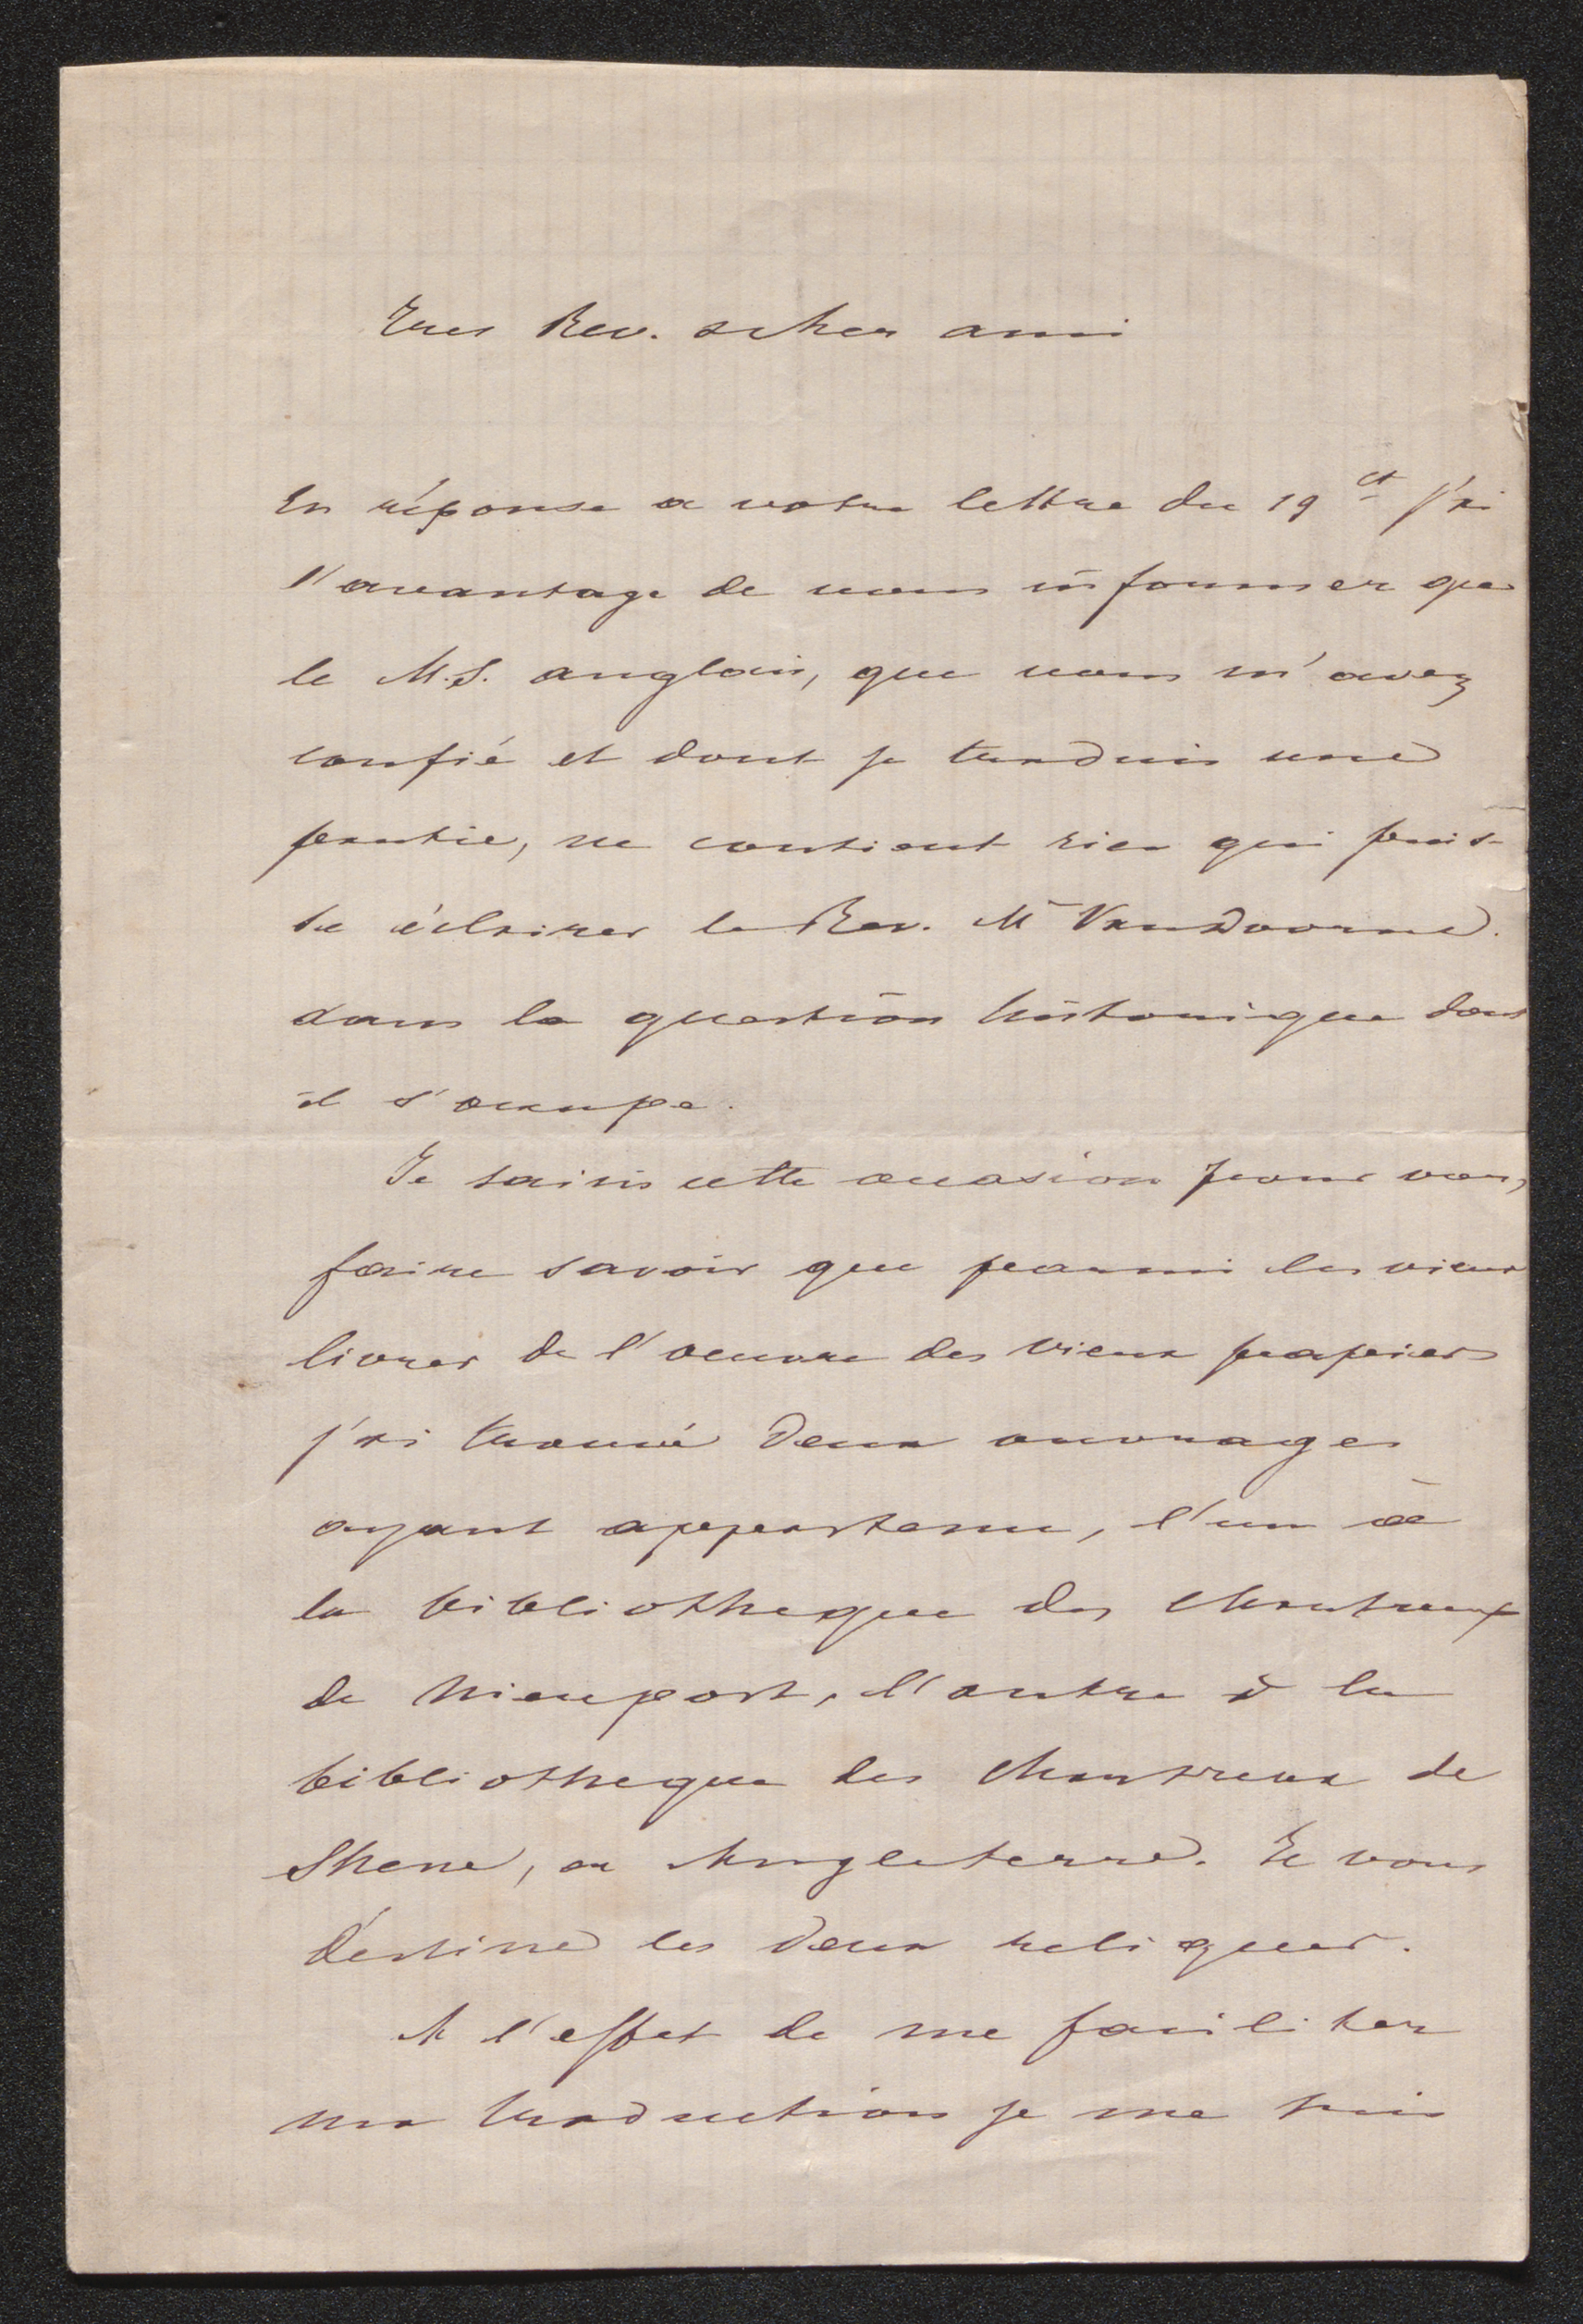 Tres Rev. & cher ami
En réponse a votre lettre du 19 ct j'ai
l'avantage de vous informer que
le M.S. anglais, que vous m'avez
confié et dont je traduis une
partie, ne contient rien qui puis-
se éclairer le Rev. Mr Vandoorne.
dans la question historique dont
il s'occupe.
Je saisis cette occasion pour vous
faire savoir que parmi les vieux
livres de l'oeuvre des vieux papiers
j'ai trouvé deux ouvrages
ayant appartenu, l'un à
la bibliotheque des Chartreux
de Nieuport, l'autre à la
bibliotheque des Chartreux de
Shene, en Angleterre. Je vous
déstine les deux reliques.
A l'effet de me faciliter
ma traduction je me suis